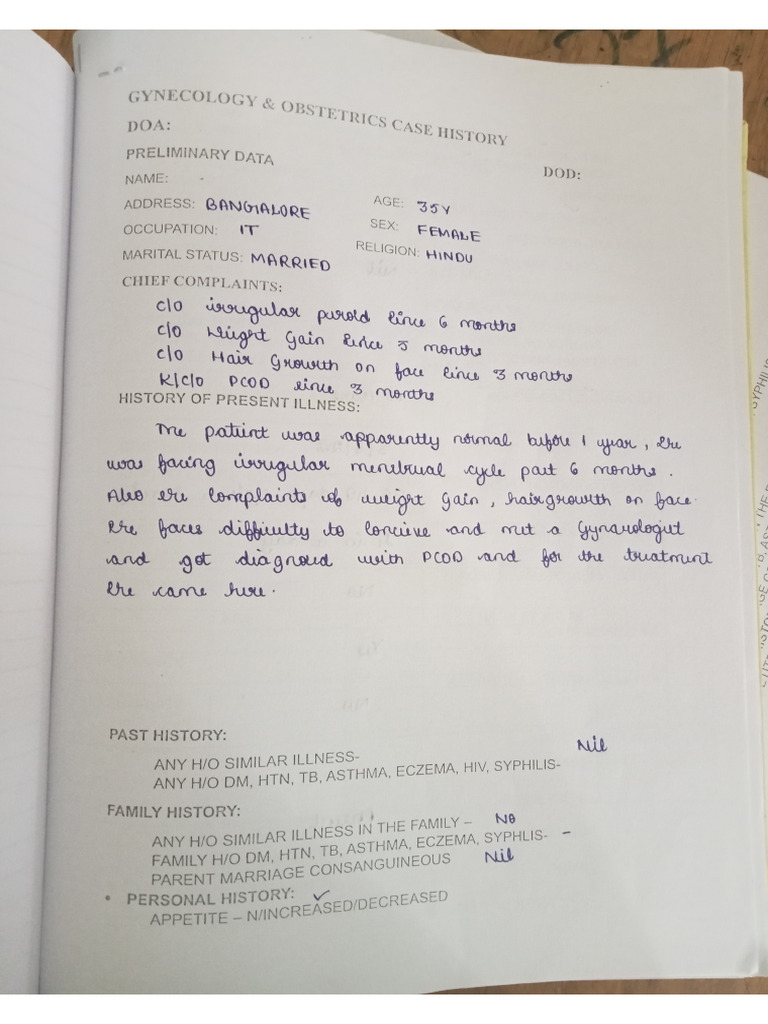 GYNECOLOGY & OBSTETRICS CASE HISTORY
DOA:
DOD:
PRELIMINARY DATA
NAME: -
ADDRESS: BANGALORE AGE: 35Y
OCCUPATION: IT SEX: FEMALE
MARITAL STATUS: MARRIED RELIGION: HINDU
CHIEF COMPLAINTS:
c/o irregular peroid since 6 months
c/o Weight Gain since 5 months
c/o Hair Growth on face since 3 months
K/C/O PCOD since 3 months
HISTORY OF PRESENT ILLNESS:
The patient was apparently normal before 1 year, she
was facing irregular menstrual cycle past 6 months.
Also she complaints of weight gain, hair growth on face.
She faces difficulty to concieve and met a Gynacologist
and got diagnosed with PCOD and for the treatment
she came here.
PAST HISTORY:
ANY H/O SIMILAR ILLNESS- Nil
ANY H/O DM, HTN, TB, ASTHMA, ECZEMA, HIV, SYPHILIS-
FAMILY HISTORY:
ANY H/O SIMILAR ILLNESS IN THE FAMILY – No
FAMILY H/O DM, HTN, TB, ASTHMA, ECZEMA, SYPHLIS- -
PARENT MARRIAGE CONSANGUINEOUS Nil
• PERSONAL HISTORY: ✓
APPETITE – N/INCREASED/DECREASED